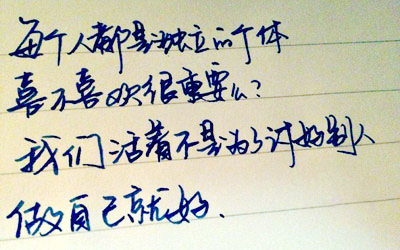 每个人都是独立的个体
喜不喜欢很重要么?
我们活着不是为了讨好别人
做自己就好.